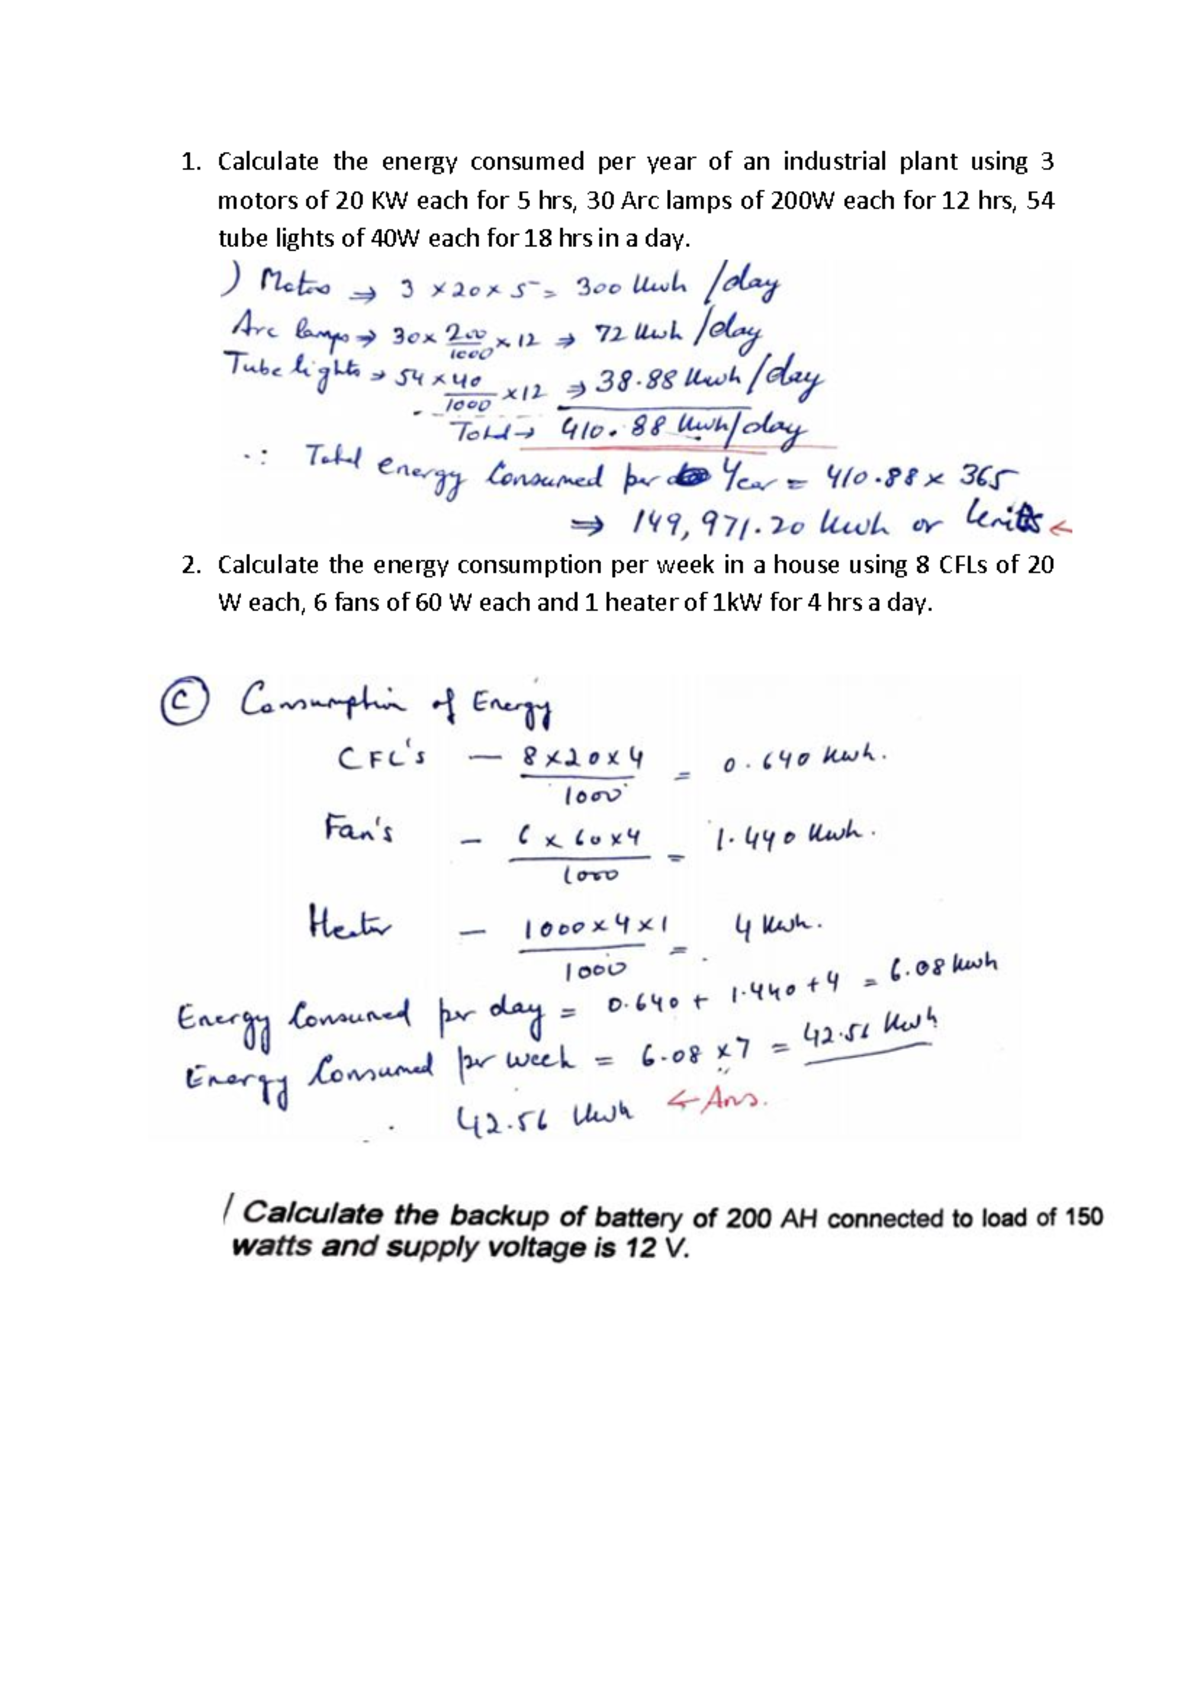 1. Calculate the energy consumed per year of an industrial plant using 3
motors of 20 KW each for 5 hrs, 30 Arc lamps of 200W each for 12 hrs, 54
tube lights of 40W each for 18 hrs in a day.
) Motors ⇒ 3 × 20 × 5 = 300 kwh /day
Arc lamps ⇒ 30 × 200/1000 × 12 ⇒ 72 kwh /day
Tube lights ⇒ 54 × 40/1000 × 12 ⇒ 38.88 kwh /day
Total → 410.88 kwh/day
∴ Total energy Consumed per Year = 410.88 × 365
⇒ 149,971.20 kwh or Units ←
2. Calculate the energy consumption per week in a house using 8 CFLs of 20
W each, 6 fans of 60 W each and 1 heater of 1kW for 4 hrs a day.
(C) Consumption of Energy
CFL's — 8×20×4/1000 = 0.640 kwh.
Fan's — 6 × 60×4/1000 = 1.440 kwh.
Heater — 1000×4×1/1000 = 4 kwh.
Energy Consumed per day = 0.640 + 1.440+4 = 6.08 kwh
Energy Consumed per week = 6.08 ×7 = 42.56 kwh
42.56 kwh ← Ans.
/ Calculate the backup of battery of 200 AH connected to load of 150
watts and supply voltage is 12 V.